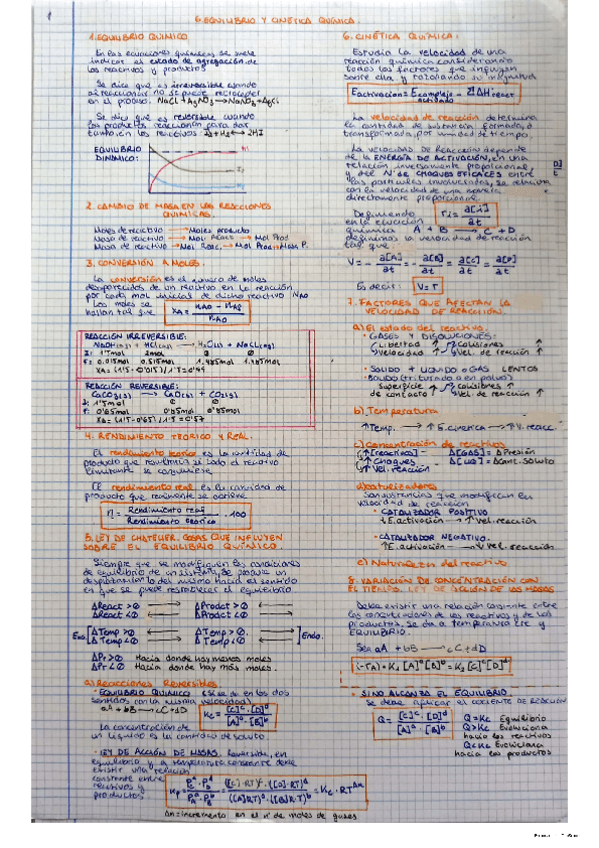 6. EQUILIBRIO Y CINÉTICA QUÍMICA.
1. EQUILIBRIO QUÍMICO
En las ecuaciones químicas, se suele
indicar el estado de agregación de
los reactivos y productos
Se dice que es irreversible cuando
al reaccionar no se puede retroceder
en el proceso.
Se dice que es reversible cuando
los productos reaccionan para dar
tanto, en los reactivos I2+H2 ⟷ 2HI
EQUILIBRIO
DINÁMICO:
2. CAMBIO DE MASA EN LAS REACCIONES
QUÍMICAS.
Moles de reactivo → Moles producto
Masa de reactivo → Mol Reacc → Mol Prod
Masa de reactivo → Mol Reac. → Mol Prod → Masa P.
3. CONVERSIÓN A MOLES.
La conversión es el número de moles
desaparecidos de un reactivo en la reacción
por cada mol inicial de dicho reactivo NAO
Los moles se
hallan tal que
XA = (nAO - nAf) / nAO
REACCIÓN IRREVERSIBLE:
REACCIÓN REVERSIBLE:
CaCO3(s) → CaO(s) + CO2(g)
4. RENDIMIENTO TEÓRICO Y REAL.
El rendimiento teórico es la cantidad de
producto que resultaría si todo el reactivo
limitante se consumiera
El rendimiento real es la cantidad de
producto que realmente se obtiene
η = Rendimiento real / Rendimiento teórico · 100
5. LEY DE CHATELIER. COSAS QUE INFLUYEN
SOBRE EL EQUILIBRIO QUÍMICO.
Siempre que se modifiquen las condiciones
de equilibrio de un sistema, se produce un
desplazamiento del mismo hacia el sentido
en que se puede restablecer el equilibrio
ΔReact > 0 ΔProdct > 0
ΔReact < 0 ΔProdct < 0
ΔTemp > 0 ΔTemp > 0. Endo.
ΔTemp < 0 ΔTemp < 0
ΔPr > 0 Hacia donde hay menos moles
ΔPr < 0 Hacia donde hay más moles.
a) Reacciones Reversibles
· EQUILIBRIO QUÍMICO
sentidos con la misma velocidad)
aA + bB → cC + dD
Kc = [C]^c · [D]^d / [A]^a · [B]^b
La concentración de
un líquido es la cantidad de soluto
· LEY DE ACCIÓN DE MASAS. Reversible, en
equilibrio y a temperatura constante debe
existir una relación
constante entre
reactivos y
productos
Δn = incremento en el nº de moles de gases
6. CINÉTICA QUÍMICA:
Estudia la velocidad de una
reacción química considerando
todos los factores que influyan
sobre ella y razonando su magnitud
La velocidad de reacción determina
la cantidad de sustancia formada o
transformada por unidad de tiempo.
La velocidad de reacción depende
de la ENERGÍA DE ACTIVACIÓN, en una
relación inversamente proporcional,
y del Nº DE CHOQUES EFICACES entre
las partículas involucradas, se relaciona
con la velocidad de una manera
directamente proporcional.
en la ecuación
química A + B → C + D
definimos la velocidad de reacción
tal que:
V = - d[A]/dt = - d[B]/dt = d[C]/dt = d[D]/dt
Es decir: V = r
7. FACTORES QUE AFECTAN LA
VELOCIDAD DE REACCIÓN.
a) El estado del reactivo.
· GASES Y DISOLUCIONES:
· SÓLIDO + LÍQUIDO O GAS LENTOS
· SÓLIDO (triturado o en polvo)
b) Temperatura
↑Temp. → ↑E.cinética → ↑V. reacc.
c) Concentración de reactivos
↑[reactivos]
↑choques
↑Vel. reacción
Δ[GAS] = ΔPresión
Δ[LIQ] = ΔCant. soluto
d) Catalizadores
Son sustancias que modifican la
velocidad de reacción
· CATALIZADOR POSITIVO
↓E. activación → ↑Vel. reacción
· CATALIZADOR NEGATIVO.
↑E. activación → ↓Vel. reacción
e) Naturaleza del reactivo
8. VARIACIÓN DE CONCENTRACIÓN CON
EL TIEMPO. LEY DE ACCIÓN DE LAS MASAS
Debe existir una relación constante entre
las concentraciones de los reactivos y de los
productos. Se da a temperatura cte y
EQUILIBRIO
Sea aA + bB → cC + dD
· SI NO ALCANZA EL EQUILIBRIO.
Se debe aplicar el COCIENTE DE REACCIÓN
Q = [C]^c · [D]^d / [A]^a · [B]^b
Q = Kc Equilibrio
Q > Kc Evoluciona
hacia los reactivos
Q < Kc Evoluciona
hacia los productos